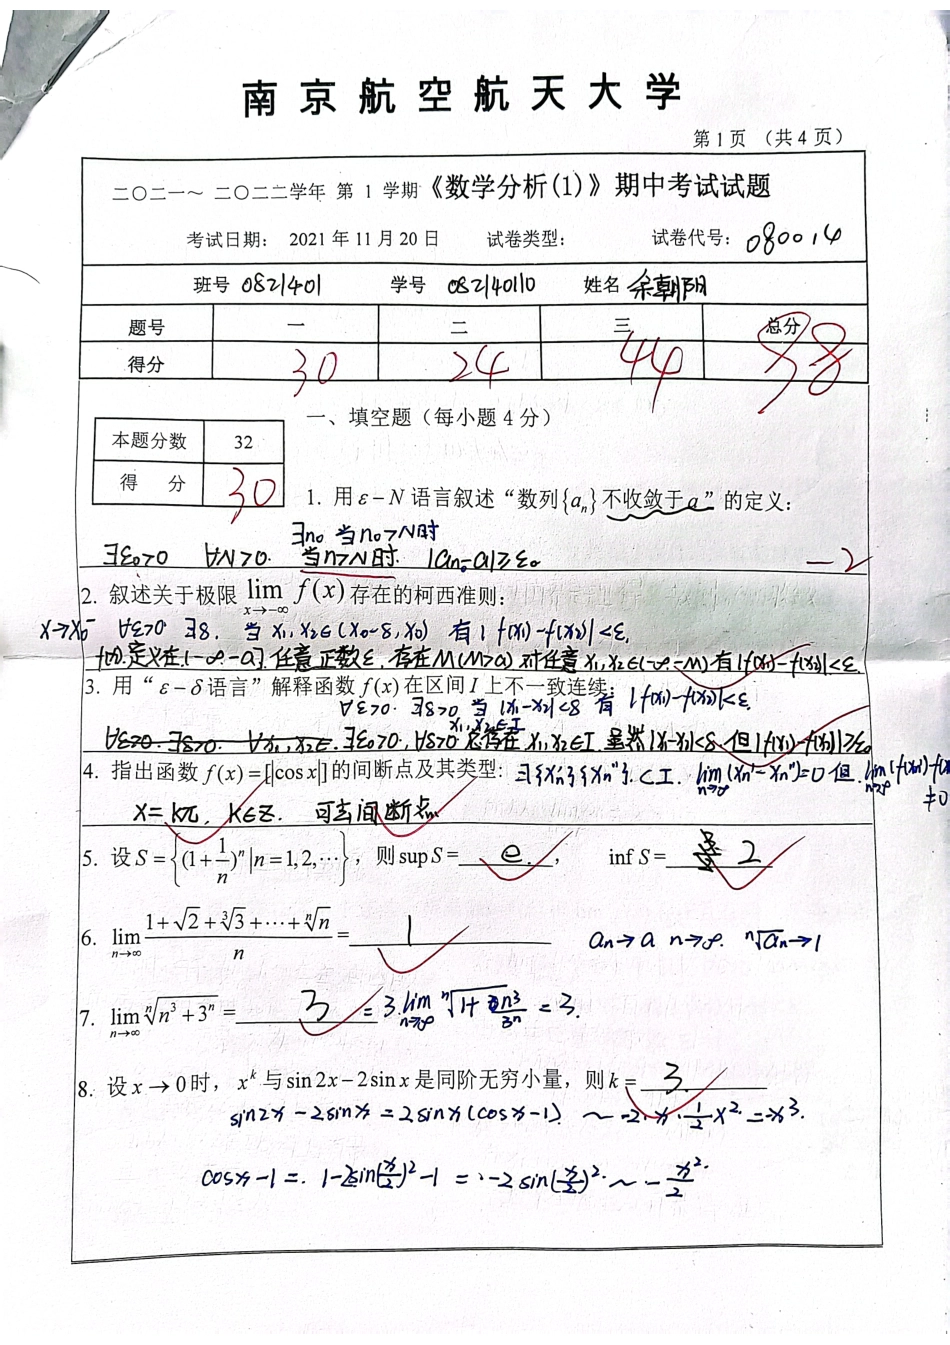 南京航空航天大学
第1页 (共4页)
二〇二一～二〇二二学年 第 1 学期《数学分析(1)》期中考试试题
考试日期: 2021年11月20日 试卷类型: 试卷代号: 080014
班号 0821401 学号 082140110 姓名 余朝阳
题号 一 二 三 总分
得分 30 24 44 98
一、填空题(每小题4分)
本题分数 32
得 分 30
1. 用ε−N语言叙述“数列{aₙ}不收敛于a”的定义:
∃n₀ 当n₀>N时
∃ε₀>0 ∀N>0. 当n>N时. |aₙ₀−a|≥ε₀ −2
2. 叙述关于极限 lim f(x) 存在的柯西准则:
x→−∞
x→x₀⁻ ∀ε>0 ∃δ. 当 x₁,x₂∈(x₀−δ,x₀) 有|f(x₁)−f(x₂)|<ε.
f(x).定义在(−∞.−a].任意正数ε,存在M(M>a)对任意x₁,x₂∈(−∞.−M)有|f(x₁)−f(x₂)|<ε.
3. 用“ε−δ语言”解释函数f(x)在区间I上不一致连续:
∀ε>0. ∃δ>0 当 |x₁−x₂|<δ 有 |f(x₁)−f(x₂)|<ε.
x₁,x₂∈I
∀ε>0. ∃δ>0. ∀x₁,x₂∈. ∃ε₀>0, ∀δ>0 总存在 x₁,x₂∈I 虽然|x₁−x₂|<δ 但|f(x₁)−f(x₂)|≥ε₀
4. 指出函数f(x)=[|cos x|]的间断点及其类型: ∃{xₙ'}{xₙ''}.⊂I. lim(xₙ'−xₙ'')=0 但. lim(f(xₙ')−f(x
n→∞ n→∞ ≠0
x=kπ, k∈Z. 可去间断点
5. 设S={(1+1/n)ⁿ|n=1,2,⋯}, 则sup S= e. , inf S= 2
6. lim (1+√2+∛3+⋯+ⁿ√n)/n = 1
n→∞
aₙ→a n→∞. ⁿ√aₙ→1
7. lim ⁿ√(n³+3ⁿ) = 3 =3.lim ⁿ√(1+n³/3ⁿ) =3.
n→∞ n→∞
8. 设x→0时, xᵏ与sin2x−2sin x是同阶无穷小量, 则k= 3.
sin2x−2sinx=2sinx(cosx−1) ~ −2·x·½x²=−x³.
cosx−1=. 1−2sin(x/2)²−1 = −2sin(x/2)²·~ −x²/2